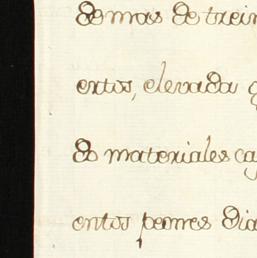 de mas de trein
entos, elevada
de materiales ca
entos peones dia